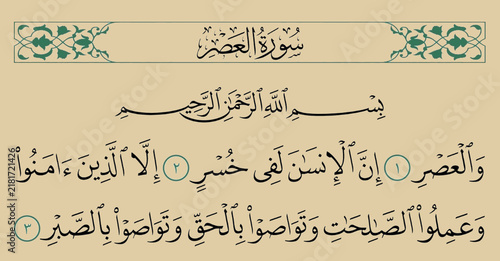 سُورَةُ الْعَصْرِ
بِسْمِ اللَّهِ الرَّحْمَٰنِ الرَّحِيمِ
وَالْعَصْرِ ١ إِنَّ الْإِنسَٰنَ لَفِى خُسْرٍ ٢ إِلَّا الَّذِينَ ءَامَنُوا۟
وَعَمِلُوا۟ الصَّٰلِحَٰتِ وَتَوَاصَوْا۟ بِالْحَقِّ وَتَوَاصَوْا۟ بِالصَّبْرِ ٣
Adobe Stock | #2181721426